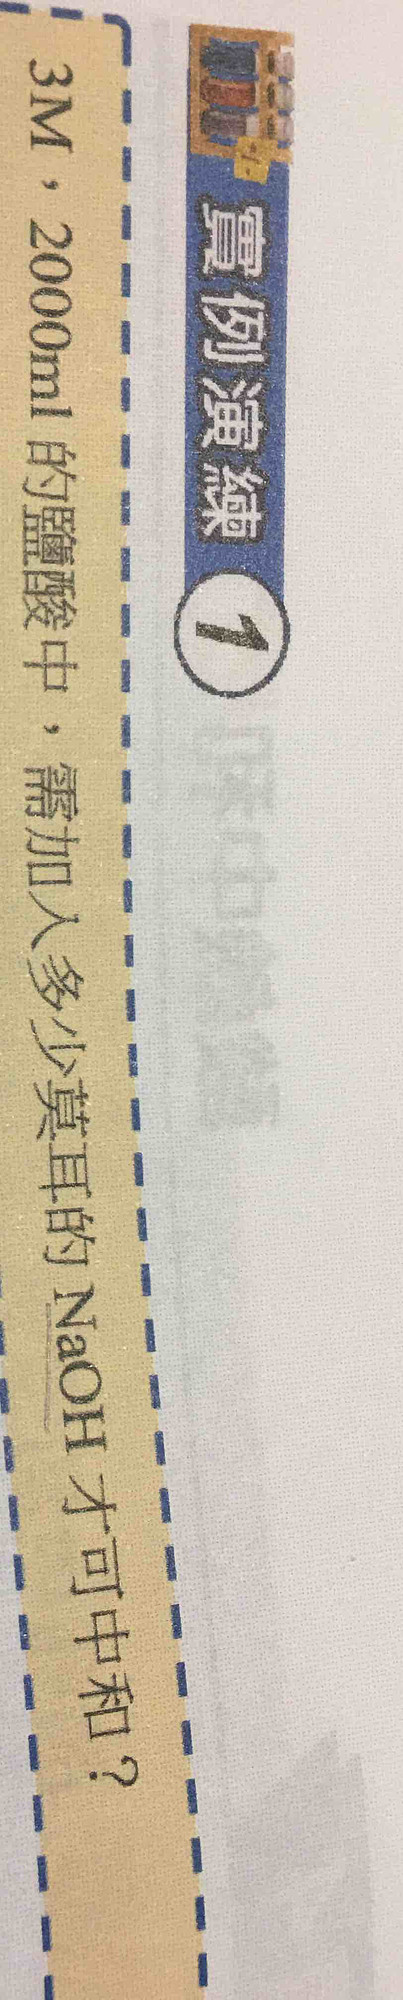 實例演練 1
3M，2000ml 的鹽酸中，需加入多少莫耳的 NaOH 才可中和？